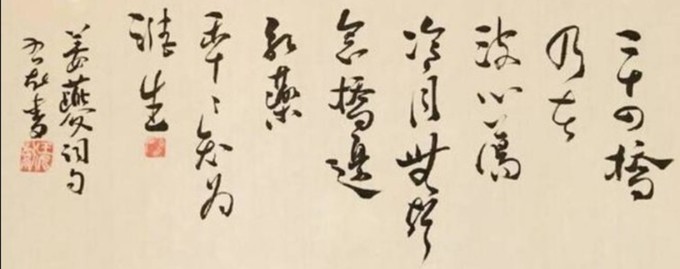 二十四橋
仍在
波心蕩
冷月無聲
念橋邊
紅藥
年年知為
誰生
姜夔詞句
書